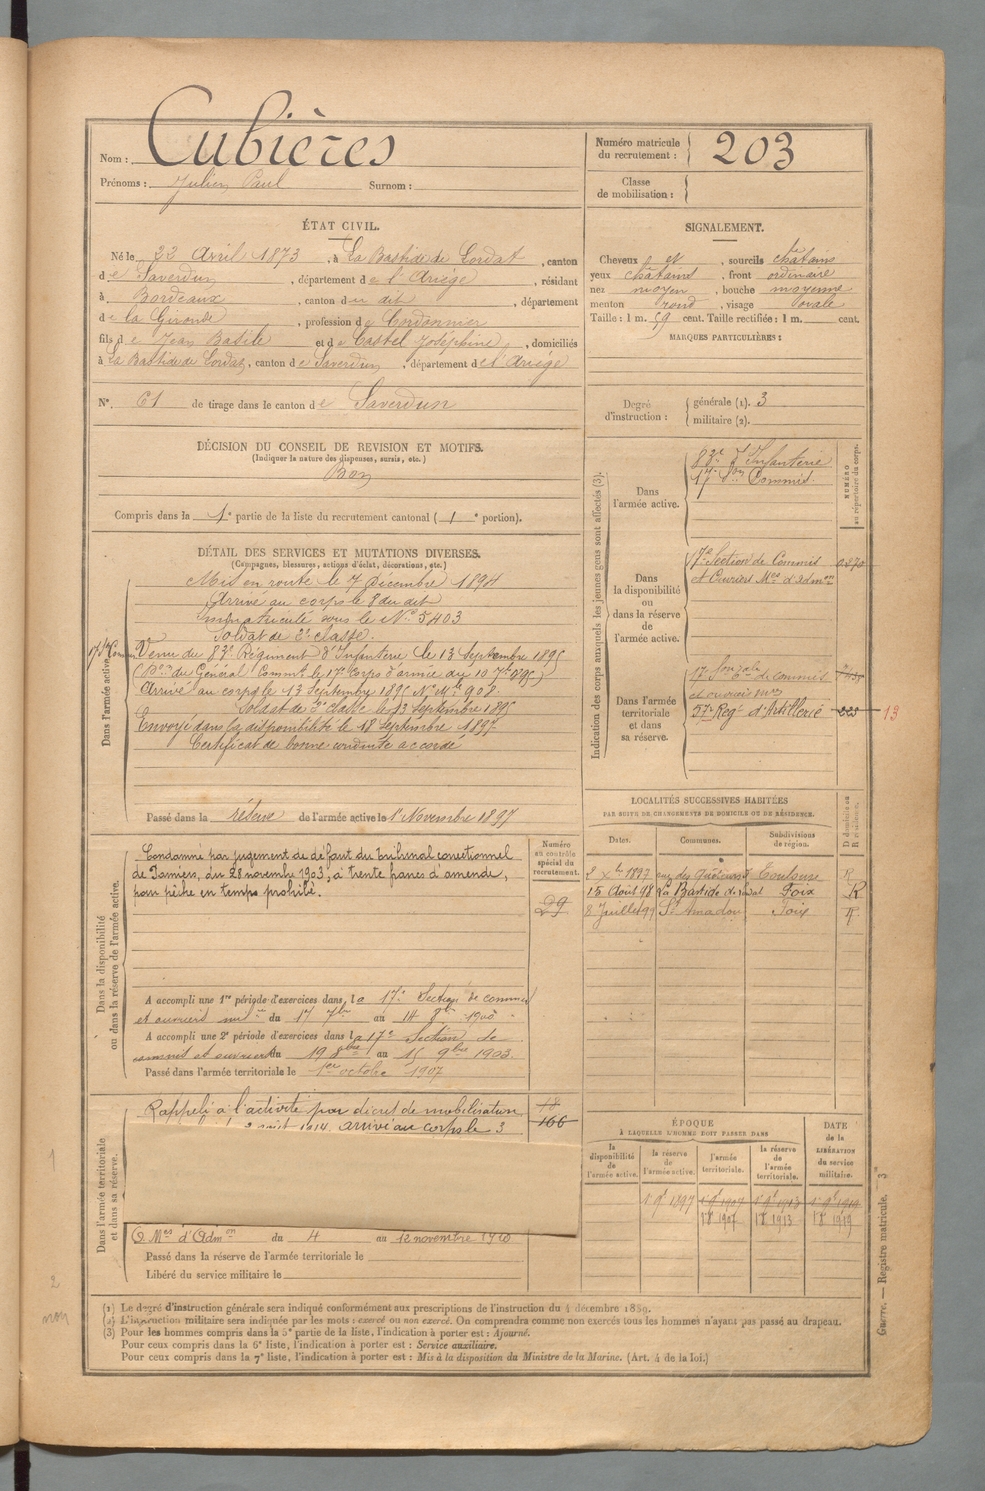 Nom : Cubières
Prénoms : Julien Paul Surnom :
Numéro matricule du recrutement : 203
Classe de mobilisation :
ÉTAT CIVIL.
Né le 22 Avril 1873, à La Bastide de Lordat, canton
de Saverdun, département de l'Ariége, résidant
à Bordeaux, canton du dit, département
de la Gironde, profession de Cordonnier
fils de Jean Basile et de Castel Joséphine, domiciliés
à La Bastide de Lordat, canton de Saverdun, département de l'Ariége
N° 61 de tirage dans le canton de Saverdun
SIGNALEMENT.
Cheveux et, sourcils châtains
yeux châtains, front ordinaire
nez moyen, bouche moyenne
menton rond, visage ovale
Taille : 1 m. 59 cent. Taille rectifiée : 1 m. cent.
MARQUES PARTICULIÈRES :
Degré d'instruction : générale (1). 3
militaire (2).
DÉCISION DU CONSEIL DE REVISION ET MOTIFS.
(Indiquer la nature des dispenses, sursis, etc.)
Bon
Compris dans la 1e partie de la liste du recrutement cantonal (1e portion).
DÉTAIL DES SERVICES ET MUTATIONS DIVERSES.
(Campagnes, blessures, actions d'éclat, décorations, etc.)
Dans l'armée active
Mis en route le 7 Décembre 1894
Arrivé au corps le 8 du dit
Immatriculé sous le N° 5403
Soldat de 2e classe.
Venu du 83e Régiment d'Infanterie le 13 Septembre 1895
(Don du Général Commt le 17e Corps d'armée du 10 7bre 95)
Arrivé au corps le 13 Septembre 1895 N° Mle 908
Soldat de 2e classe le 13 Septembre 1895
Envoyé dans la disponibilité le 18 Septembre 1897
Certificat de bonne conduite accordé
Passé dans la réserve de l'armée active le 1er Novembre 1897
Indication des corps auxquels les jeunes gens sont affectés (3).
NUMÉRO au répertoire du corps.
Dans l'armée active.
83e d'Infanterie
17e Son Commis.
Dans la disponibilité ou dans la réserve de l'armée active.
17e Section de Commis
et Ouvriers Mres d'admon
Dans l'armée territoriale et dans sa réserve.
et ouvriers mres
57e Regt d'Artillerie 13
Dans la disponibilité ou dans la réserve de l'armée active.
Numéro au contrôle spécial du recrutement.
29
Condamné par jugement de défaut du tribunal correctionnel
de Pamiers, du 28 novembre 1903, à trente francs d'amende,
pour pêche en temps prohibé.
A accompli une 1re période d'exercices dans la 17e Section de commis
et ouvriers milres du 17 7bre au 14 8bre 1900
A accompli une 2e période d'exercices dans la 17e Section de
commis et ouvriers du 19 8bre au 15 9bre 1903.
Passé dans l'armée territoriale le 1er octobre 1907
LOCALITÉS SUCCESSIVES HABITÉES
PAR SUITE DE CHANGEMENTS DE DOMICILE OU DE RÉSIDENCE.
Dates. Communes. Subdivisions de région. D domicile ou R résidence.
Toulouse R
15 Août 98 La Bastide de Lordat Foix R
8 Juillet 99 St Amadou Foix R
Dans l'armée territoriale et dans sa réserve.
Rappelé à l'activité par décret de mobilisation
2 août 1914. arrivé au corps le 3
18
166
O. Mres d'Admon du 4 au 12 novembre 1910
Passé dans la réserve de l'armée territoriale le
Libéré du service militaire le
ÉPOQUE
À LAQUELLE L'HOMME DOIT PASSER DANS
la disponibilité de l'armée active. la réserve de l'armée active. l'armée territoriale. la réserve de l'armée territoriale. DATE de la LIBÉRATION du service militaire.
1 9e 1897 1 9e 1907 1 9e 1913 1 9e 1919
1 8e 1907 1 8e 1913 1 8e 1919
(1) Le degré d'instruction générale sera indiqué conformément aux prescriptions de l'instruction du 4 décembre 1889.
(2) L'instruction militaire sera indiquée par les mots : exercé ou non exercé. On comprendra comme non exercés tous les hommes n'ayant pas passé au drapeau.
(3) Pour les hommes compris dans la 5e partie de la liste, l'indication à porter est : Ajourné.
Pour ceux compris dans la 6e liste, l'indication à porter est : Service auxiliaire.
Pour ceux compris dans la 7e liste, l'indication à porter est : Mis à la disposition du Ministre de la Marine. (Art. 4 de la loi.)
Guerre. — Registre matricule. 3
1
2
non